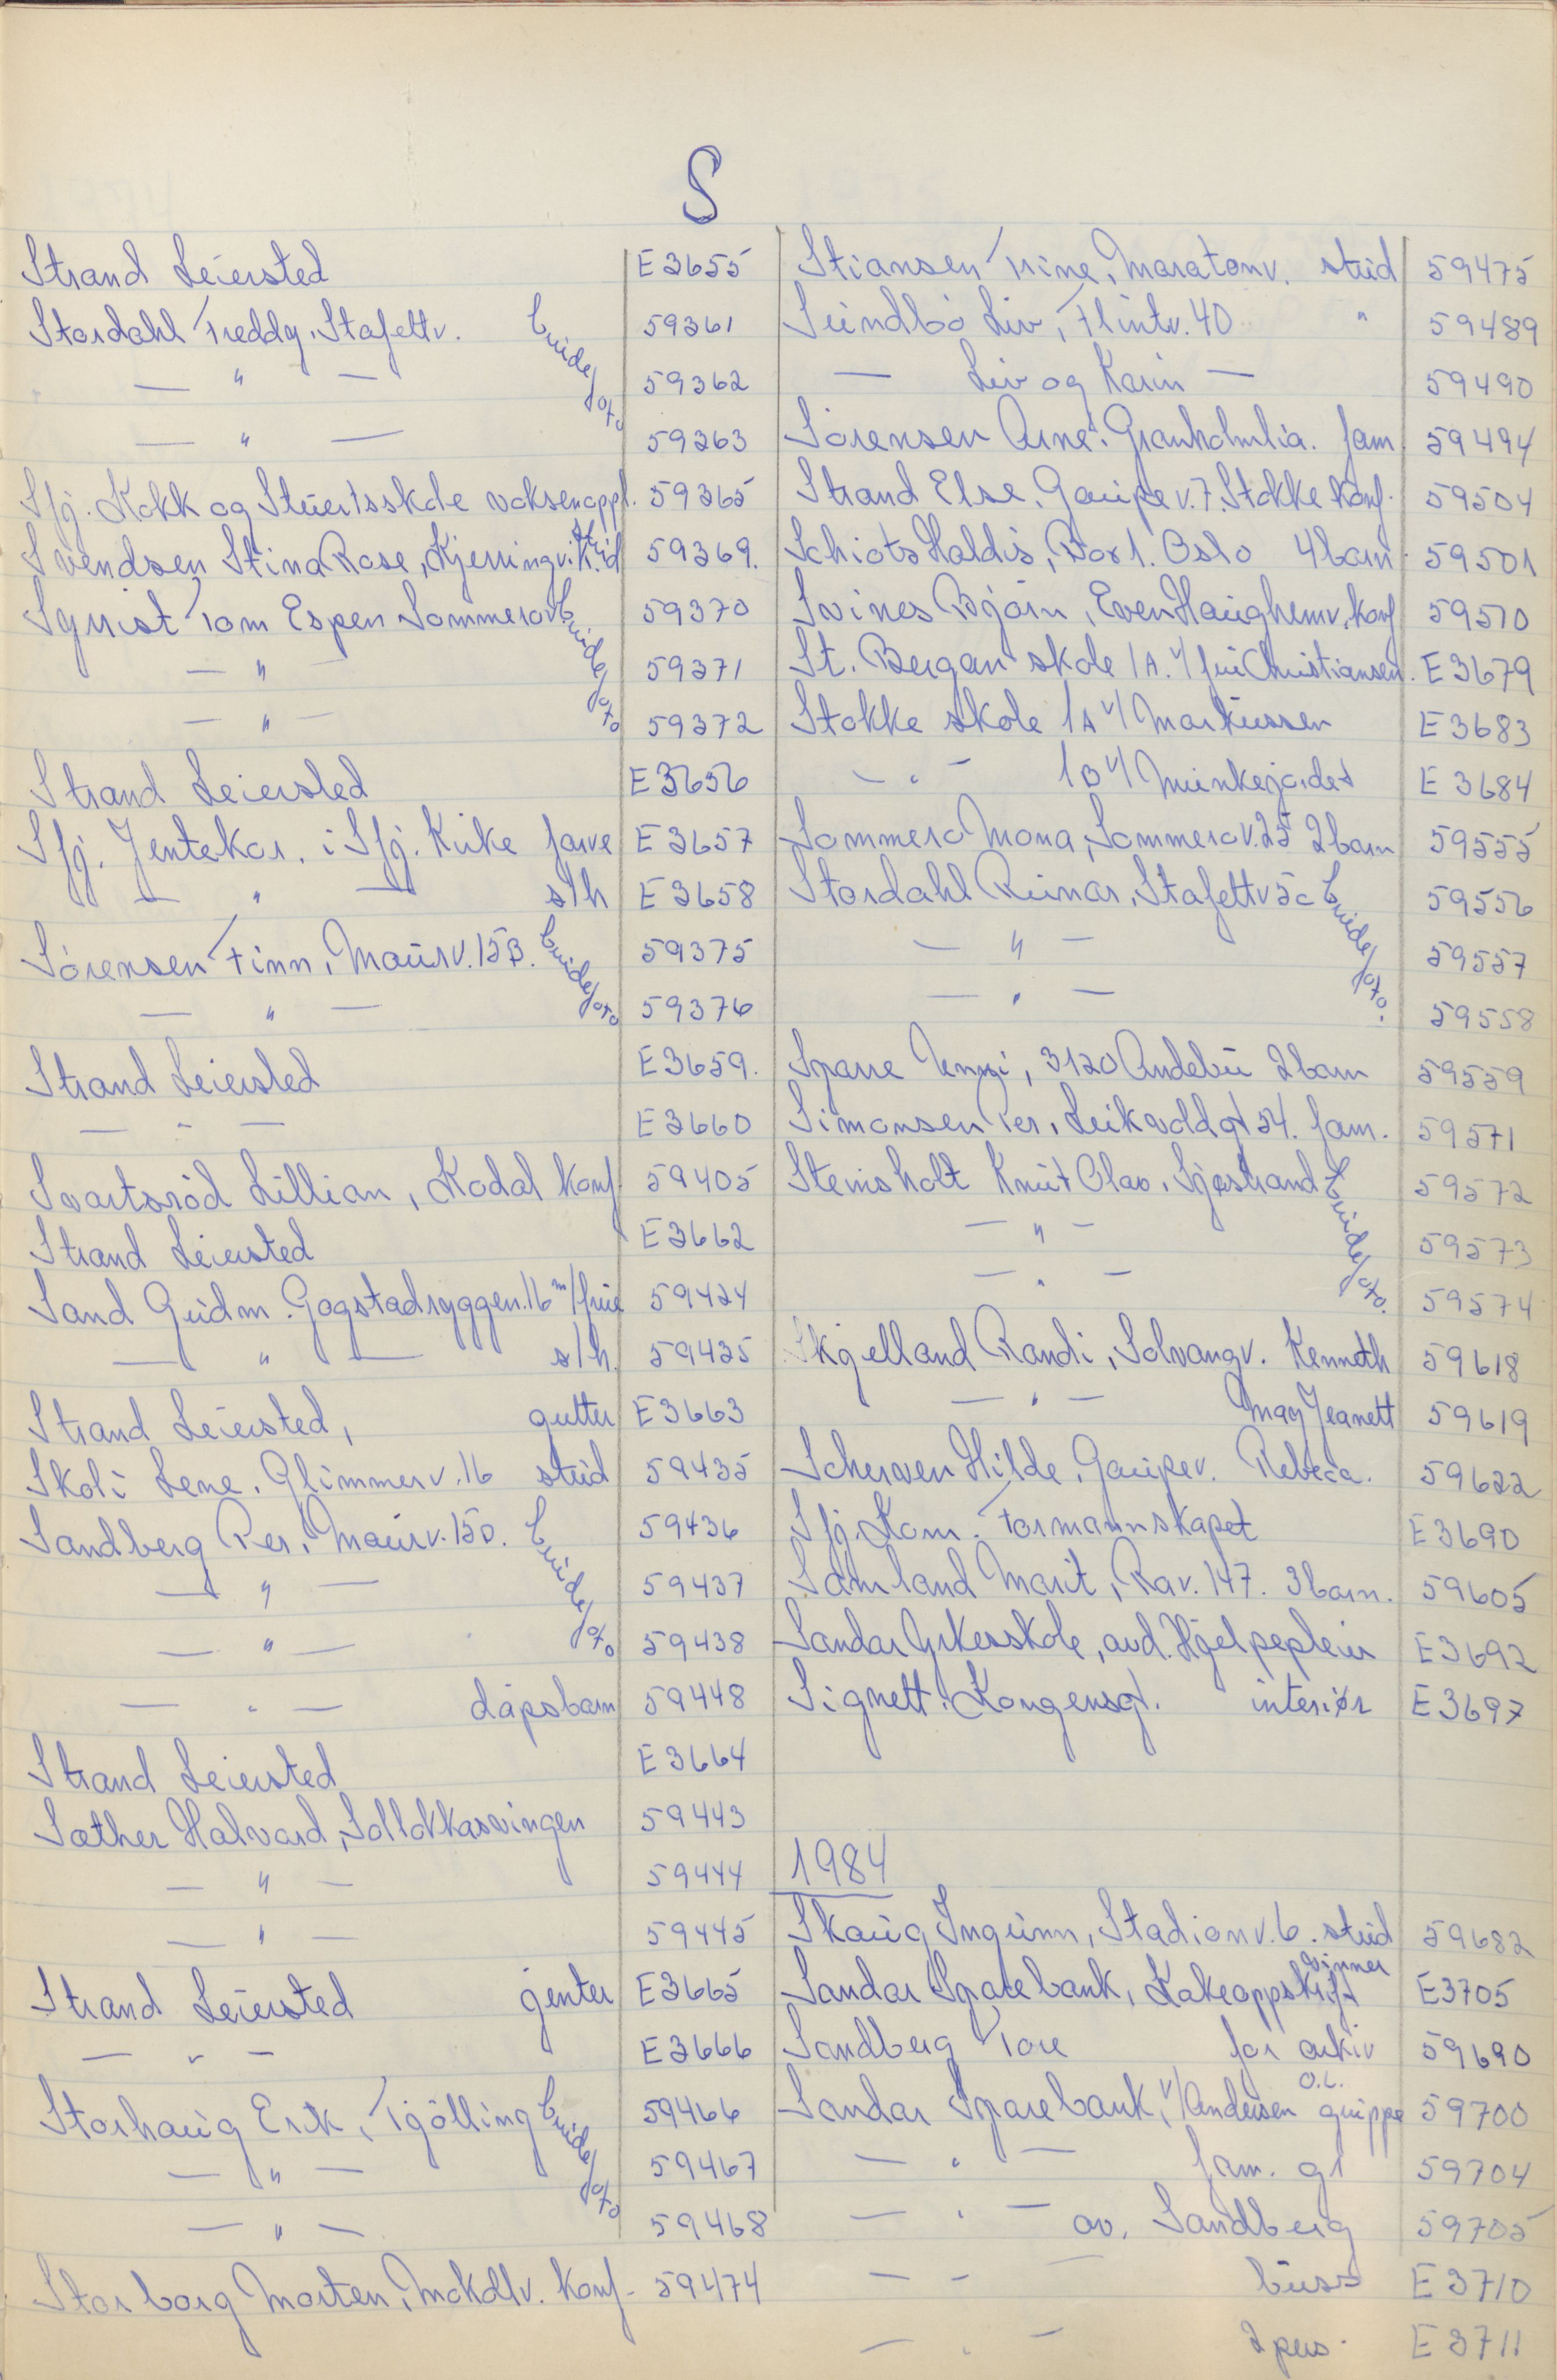 S
Strand Leiersted E3655
Stordahl Freddy. Stafettv. brudefoto 59361
— " — 59362
— " — 59363
Sfj. Kokk og Stuertsskole voksenoppl. 59365
Svendsen Stina Rose, Kjerringv. stud 59369.
Sqvist Tom Espen Sommerov brudefoto 59370
— " — 59371
— " — 59372
Strand Leiersted E3656
Sfj. Jentekor. i Sfj. Kirke farve E3657
— " — s/h E3658
Sörensen Finn, Maurv. 15B. brudefoto 59375
— " — 59376
Strand Leiersted E3659.
— " — E3660
Svartsröd Lillian, Kodal konf 59405
Strand Leiersted E3662
Sand Gudm. Gogstadryggen. 16 m/frue 59424
— " — s/h. 59425
Strand Leiersted, gutter E3663
Skoli Lene. Glimmerv. 16 stud 59435
Sandberg Per, Maurv. 15D. brudefoto 59436
— " — 59437
— " — 59438
— " — dåpsbarn 59448
Strand Leiersted E3664
Sæther Halvard, Sollökkasvingen 59443
— " — 59444
— " — 59445
Strand Leiersted jenter E3665
— " — E3666
Storhaug Erik, Tjölling brudefoto 59466
— " — 59467
— " — 59468
Storborg Morten, Mokollv. konf. 59474
Stiansen Trine, Maratonv. stud 59475
Sundbö Liv, Flintv. 40 " 59489
— Liv og Karin — 59490
Sörensen Arne. Granholmlia. fam 59494
Strand Else. Gaupev. 7. Stokke konf. 59504
Schiøts Haldis, Box 1. Oslo 4 barn 59501
Svines Björn, Even Haughemv. konf 59510
St. Bergan skole 1A. v/ fru Christiansen. E3679
Stokke skole 1A v/ Markussen E3683
— " — 1B v/ Munkejordet E3684
Sommero Mona, Sommerov. 25 2 barn 59555
Stordahl Runar, Stafettv 5c brudefoto. 59556
— " — 59557
— " — 59558
Sparre Unni, 3120 Andebu 2 barn 59559
Simonsen Per, Leikvollgt 54. fam. 59571
Steinsholt Knut Olav, Sjøstrand brudefoto. 59572
— " — 59573
— " — 59574
Skjelland Randi, Solvangv. Kenneth 59618
— " — May Jeanett 59619
Scherven Hilde, Gaupev. Rebecca. 59622
Sfj. Kom. Formannskapet E3690
Samland Marit, Rav. 147. 3 barn. 59605
Sandar Yrkesskole, avd. Hjelpepleier E3692
Signett. Kongensgt. interiør E3697
1984
Skaug Ingunn, Stadionv. 6. stud 59682
Sandar Sparebank, Kakeoppskrift vinner E3705
Sandberg Tore for arkiv 59690
Sandar Sparebank, v/Andersen O.L. gruppe 59700
— " — fam. gr 59704
— " — av. Sandberg 59705
— " — buss E3710
— " — 2 pers. E3711